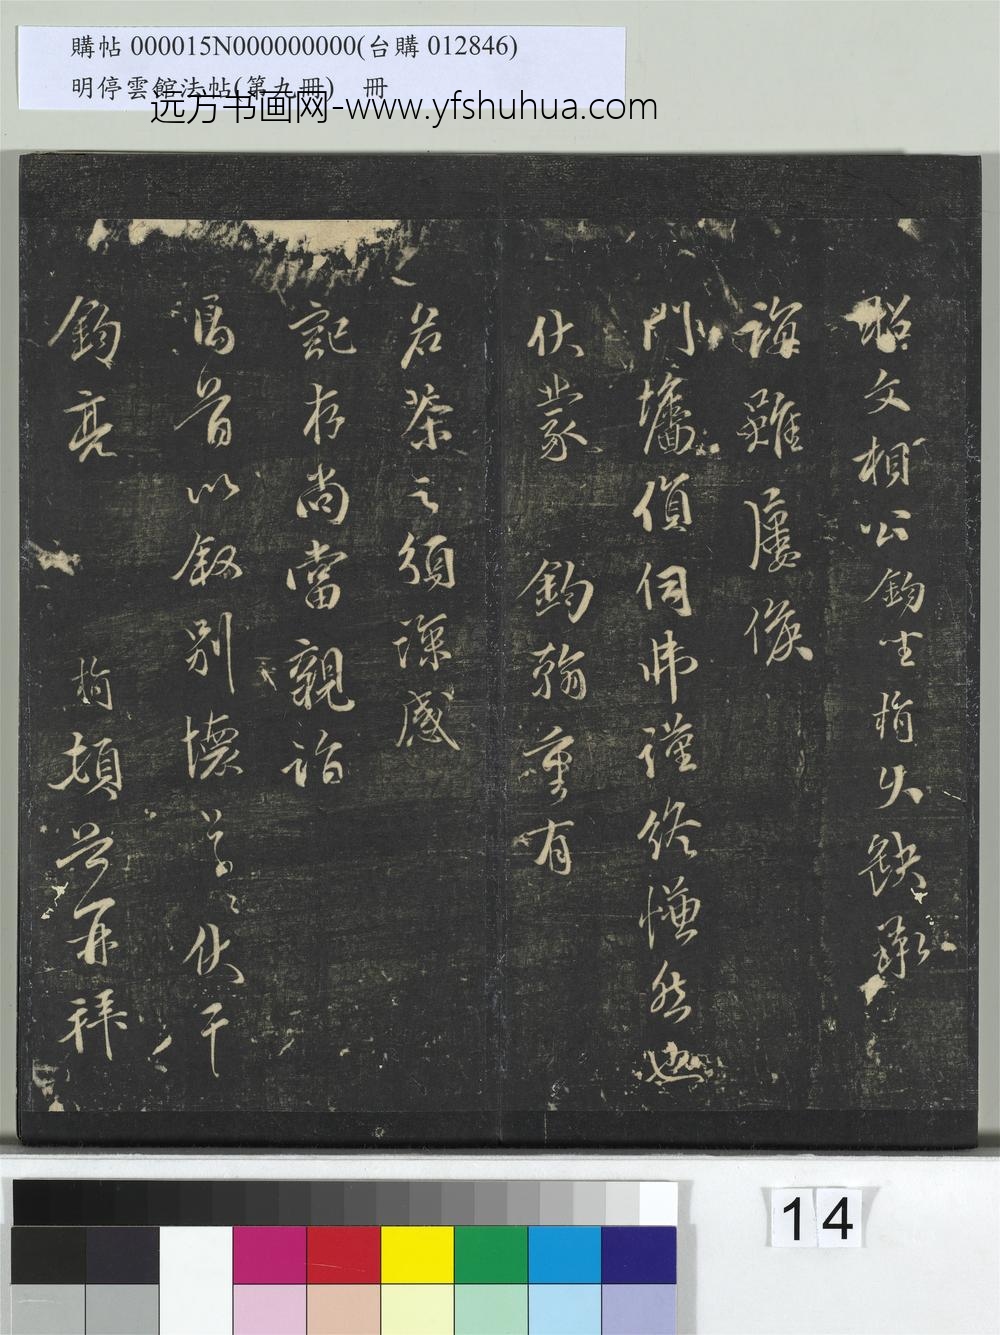 購帖 000015N000000000(台購 012846)
明停雲館法帖(第九冊) 冊
远方书画网-www.yfshuhua.com
聪文相公鈞坐栯久缺承
誨雖屢候
門墻偵伺弗謹終慊然也
伏蒙 鈞翰重有
名茶之須深感
記存尚當親詣
馬首以敘別懷草々伏干
鈞亮 栯頓首再拜
14